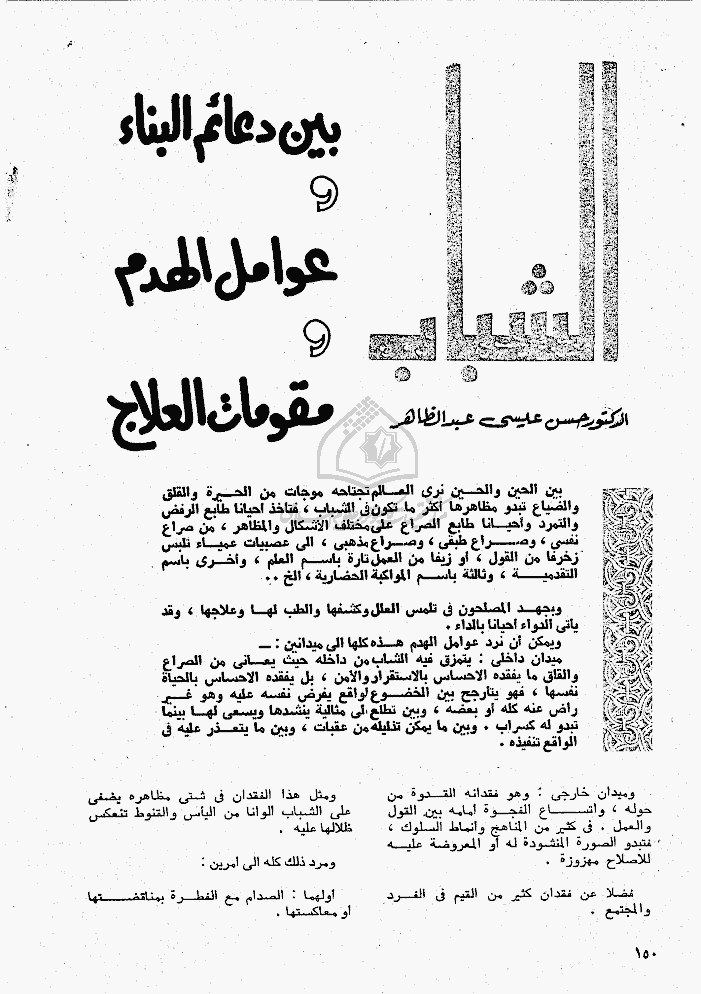 الشباب
بين دعائم البناء
و
عوامل الهدم
و
مقومات العلاج
الدكتور حسن عيسى عبد الظاهر
بين الحين والحــين نرى العــالم تجتاحه موجات من الحــيرة والقلق
والضياع تبدو مظاهرها أكثر ما تكون فى الشباب ، فتأخذ أحيانا طابع الرفض
والتمرد وأحيــانا طابع الصراع على مختلف الأشكال والمظاهر ، من صراع
نفسى ، وصــــراع طبقى ، وصــراع مذهبى ، الى عصبيات عميــاء تلبس
زخرفا من القول ، أو زيفا من العمل تارة باســم العلم ، وأخــرى باسم
التقدميــــة ، وثالثة باســم المواكبة الحضارية ، الخ ..
ويجهــد المصلحون فى تلمس العلل وكشفها والطب لهــا وعلاجها ، وقد
يأتى الدواء أحيانا بالداء .
ويمكن أن نرد عوامل الهدم هــذه كلها الى ميدانين : ــ
ميدان داخلى : يتمزق فيه الشباب من داخله حيث يعــانى من الصراع
والقلق ما يفقده الاحساس بالاستقرار والأمن ، بل يفقده الاحساس بالحياة
نفسها ، فهو يتأرجح بين الخضــوع لواقع يفرض نفسه عليه وهو غــير
راض عنه كله أو بعضه ، وبين تطلع الى مثالية ينشدها ويسعى لهــا بينما
تبدو له كسراب . وبين ما يمكن تذليله من عقبات ، وبين ما يتعــذر عليه فى
الواقع تنفيذه .
وميدان خارجى : وهو فقدانه القــدوة من
حوله ، واتســــاع الفجــوة أمامه بين القول
والعمل . فى كثير من المناهج وأنماط السلوك ،
فتبدو الصورة المنشودة له أو المعروضة عليــه
للاصلاح مهزوزة .
فضلا عن فقدان كثير من القيم فى الفــرد
والمجتمع .
ومثل هذا الفقدان فى شــتى مظاهره يضفى
على الشباب ألوانا من اليأس والقنوط تنعكس
ظلالها عليه .
ومرد ذلك كله الى أمرين :
أولهما : الصدام مع الفطــرة بمناقضــــتها
أو معاكستها .
١٥٠